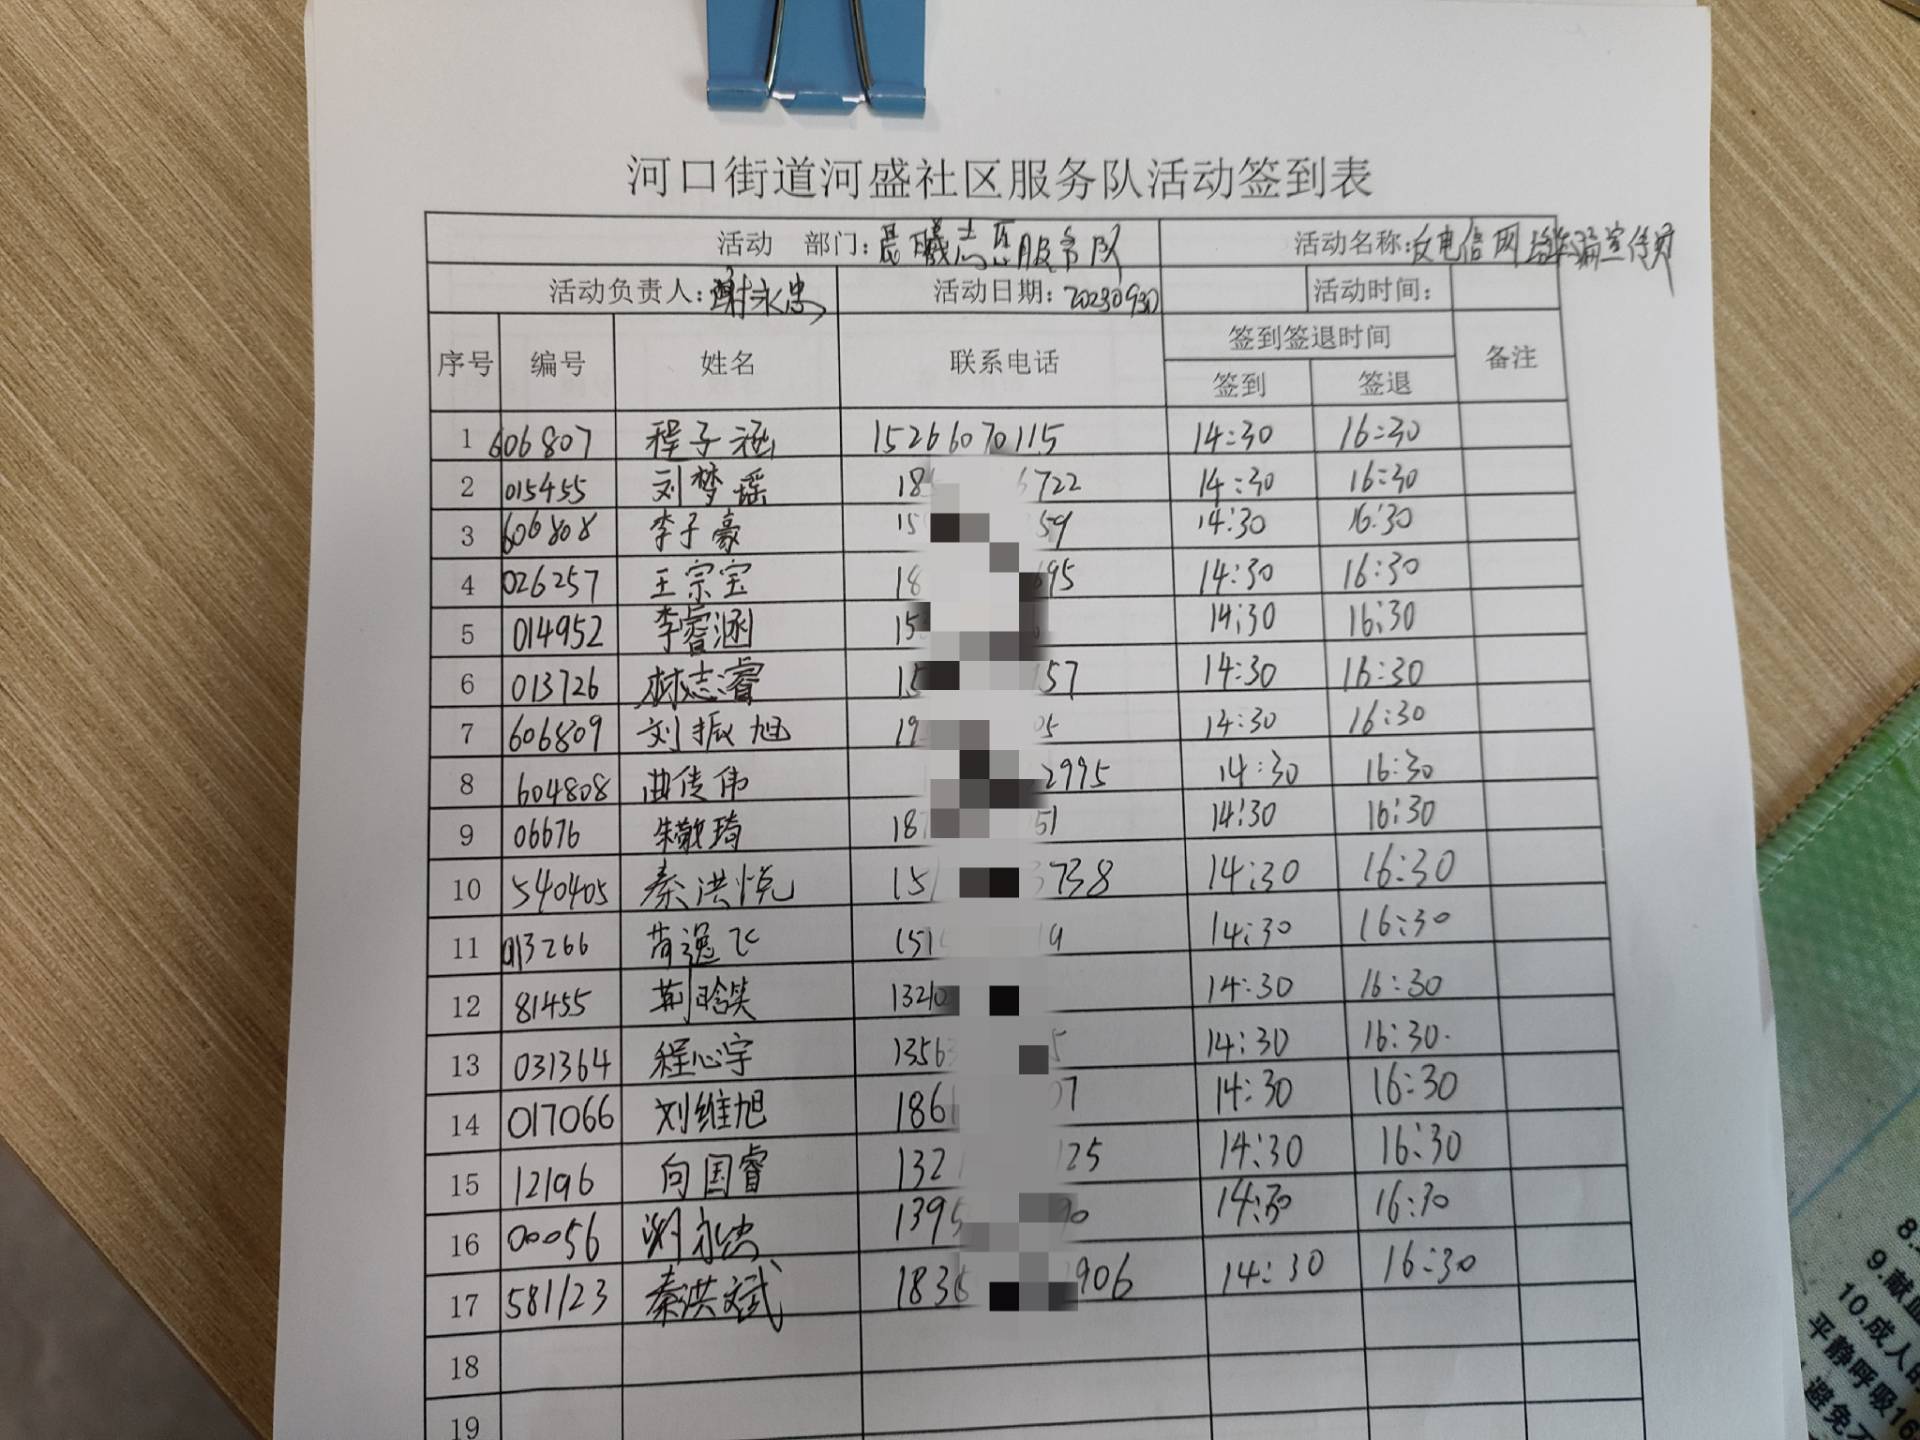 河口街道河盛社区服务队活动签到表
活动 部门:晨曦志愿服务队 活动名称:反电信网络诈骗宣传
活动负责人:谢永忠 活动日期:20230930 活动时间:
序号 编号 姓名 联系电话 签到签退时间 备注
签到 签退
1 606807 程子涵 15266070115 14:30 16:30
2 015455 刘梦瑶 18 6722 14:30 16:30
3 606808 李子豪 15 59 14:30 16:30
4 026257 王宗宝 18 695 14:30 16:30
5 014952 李睿涵 15 14:30 16:30
6 013726 林志睿 15 57 14:30 16:30
7 606809 刘振旭 19 05 14:30 16:30
8 604808 曲传伟 2995 14:30 16:30
9 06676 朱敬琦 187 51 14:30 16:30
10 540405 秦洪悦 15 3738 14:30 16:30
11 013266 肖逸飞 151 19 14:30 16:30
12 81455 荆晗笑 1321 14:30 16:30
13 031364 程心宇 1356 5 14:30 16:30
14 017066 刘维旭 186 07 14:30 16:30
15 12196 向国睿 132 125 14:30 16:30
16 00056 谢永忠 1395 90 14:30 16:30
17 581123 秦洪斌 1836 906 14:30 16:30
18
19
8.
9.献血
10.成人的
平静呼吸16
避免不